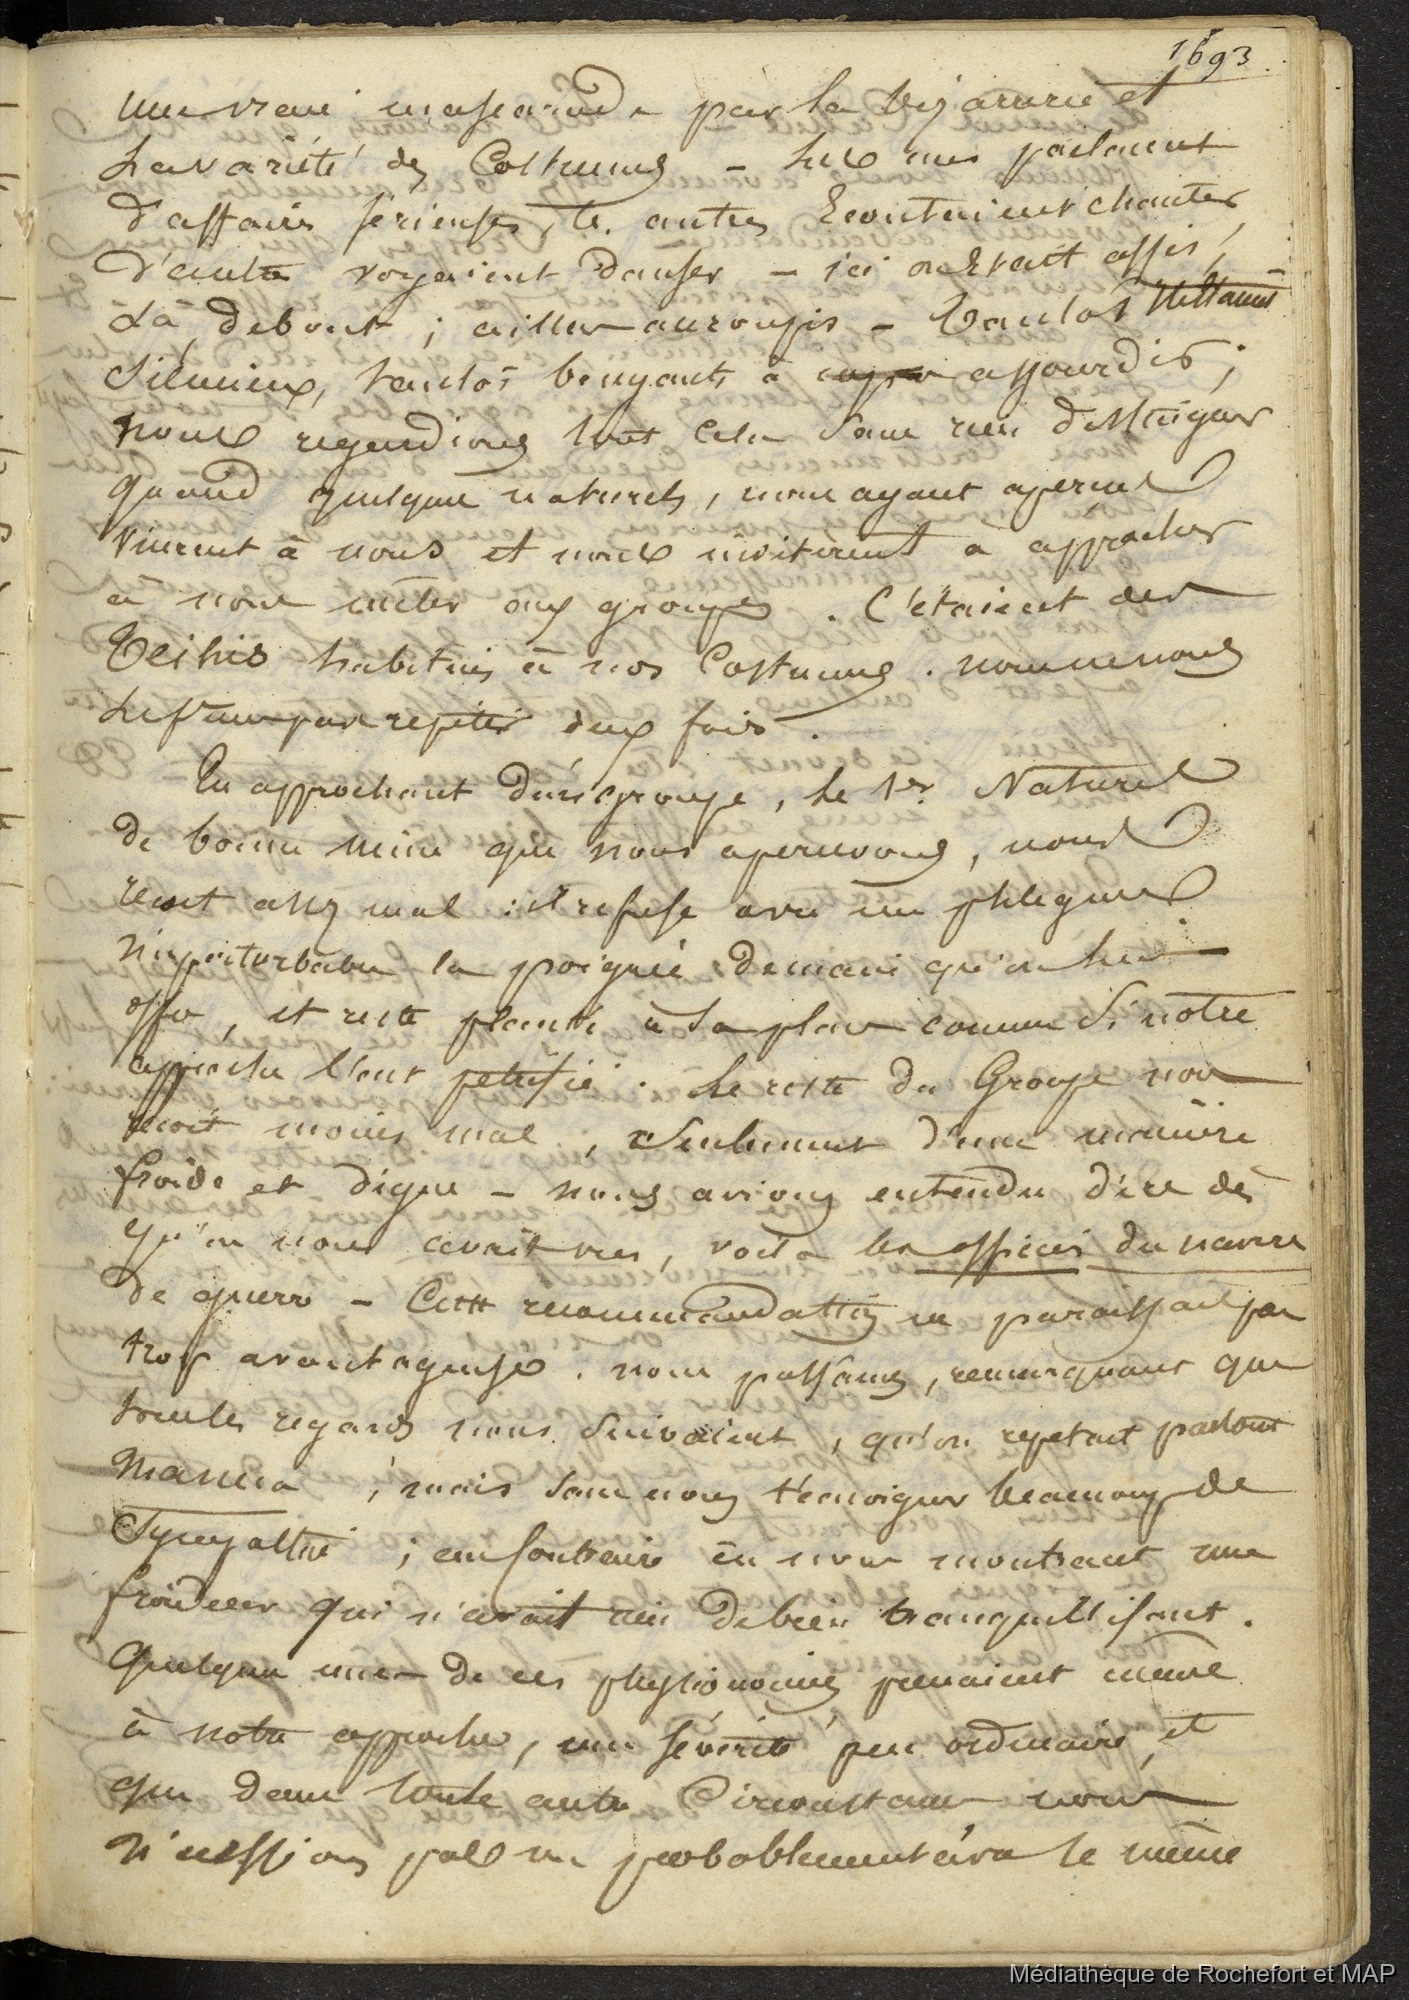 1693
une vraie mascarade par la bizarrerie et
la variété des Costumes – les uns parlaient
d'affaires sérieuses, les autres Ecoutaient chanter,
d'autres voyaient danser – ici on Etait assis,
Là, debout ; ailleurs accroupis – tantôt
silencieux, tantôt bruyants à assourdir ;
nous regardions tout cela sans rien distinguer
quand quelques naturels, nous ayant aperçus
vinrent à nous et nous invitèrent à approcher
à nous mêler aux groupes . C'étaient des
habitués à nos Costumes . nous ne nous
le fîmes pas repéter deux fois .
En approchant d'un groupe, le 1er Naturel
de bonne mine que nous apercevons, nous
reçoit assez mal : il refuse avec un phlegme
imperturbable la poignée de main qu'on lui
offre, et reste planté à sa place comme si notre
approche l'eut pétrifié . Le reste du Groupe nous
reçoit moins mal, seulement d'une manière
froide et digne – nous avions entendu dire dès
qu'on nous avait vus, voilà les officiers du navire
de guerre – Cette recommandation ne paraissait pas
trop avantageuse . nous passâmes, remarquant que
tous les regards nous suivaient, qu'on repetait partout
; mais sans nous témoigner beaucoup de
Sympathie ; au contraire en nous montrant une
froideur qui n'avait rien de bien tranquillisant .
Quelques unes de ces physionomies prenaient même
à notre approche, une sévérité peu ordinaire, et
que dans toute autre Circonstance nous
n'eussions pas vu probablement avec le même
Médiathèque de Rochefort et MAP